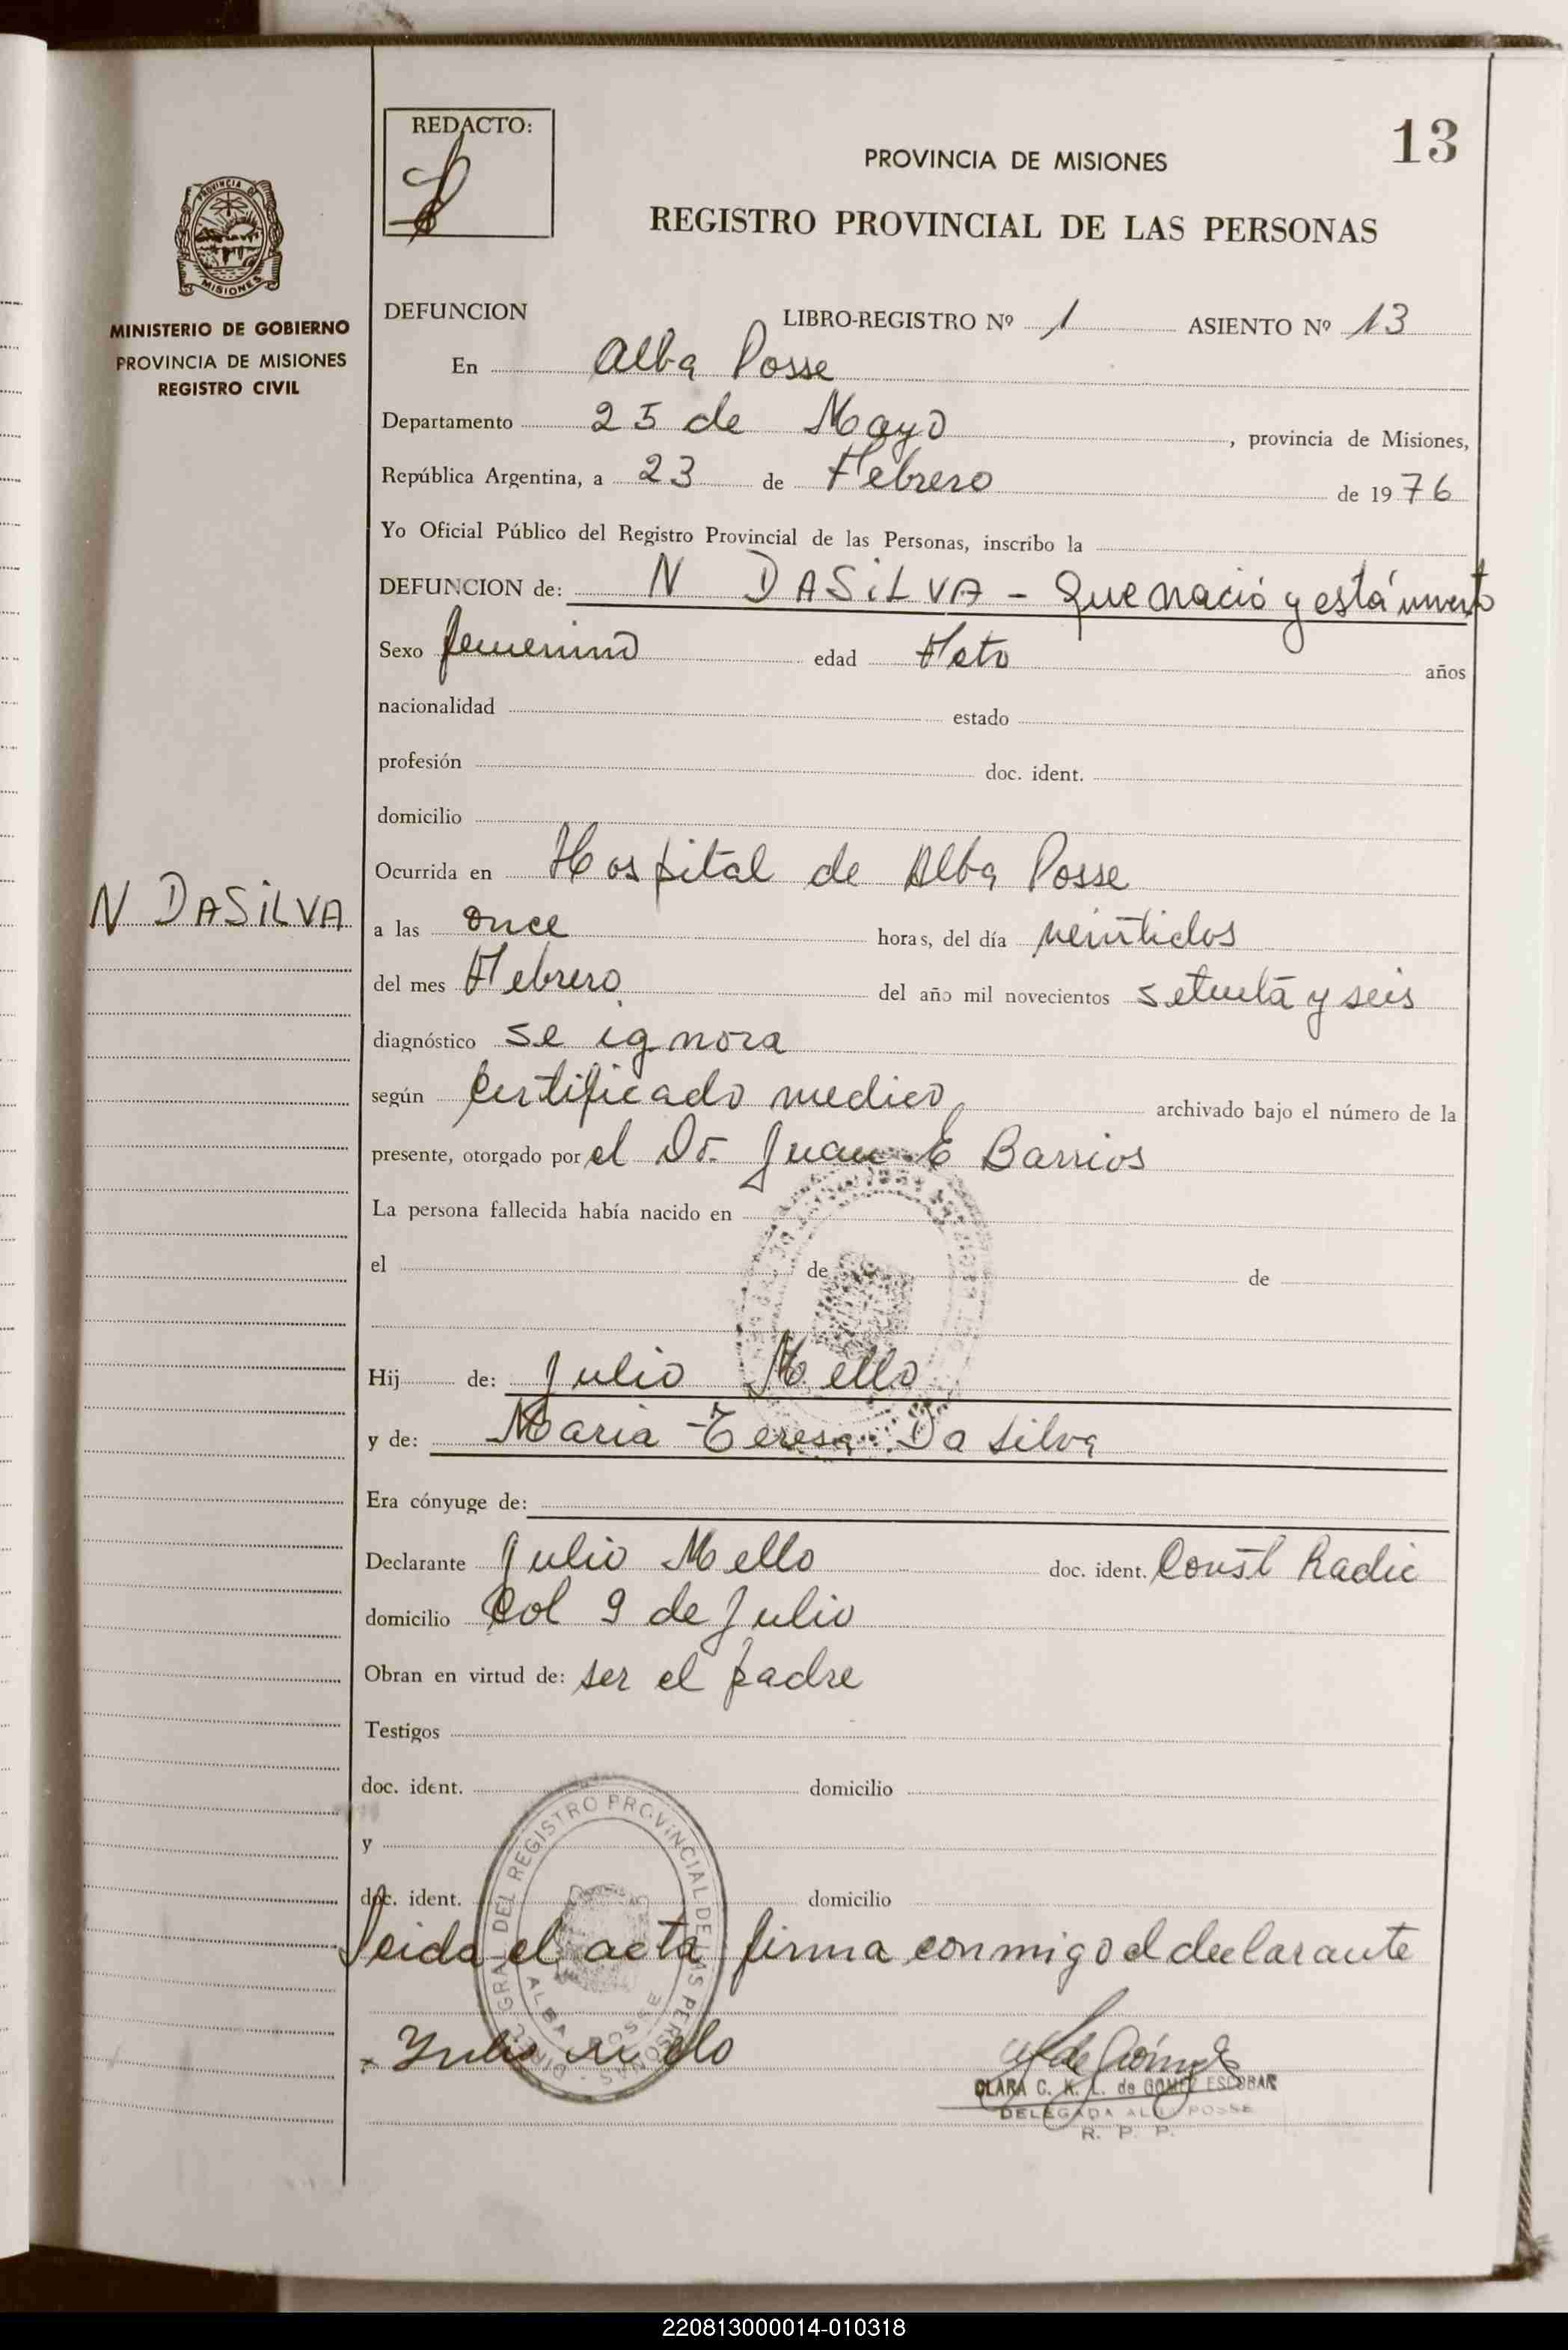 REDACTO:
13
PROVINCIA DE MISIONES
REGISTRO PROVINCIAL DE LAS PERSONAS
PROVINCIA DE
MISIONES
MINISTERIO DE GOBIERNO
PROVINCIA DE MISIONES
REGISTRO CIVIL
DEFUNCION LIBRO-REGISTRO Nº 1 ASIENTO Nº 13
En Alba Posse
Departamento 25 de Mayo, provincia de Misiones,
República Argentina, a 23 de Febrero de 1976
Yo Oficial Público del Registro Provincial de las Personas, inscribo la
DEFUNCION de: N DASiLVA - Que nació y está muerto
Sexo femenino edad Feto años
nacionalidad estado
profesión doc. ident.
domicilio
Ocurrida en Hospital de Alba Posse
N DASiLVA
a las once horas, del día veintidos
del mes Febrero del año mil novecientos setenta y seis
diagnóstico se ignora
según Certificado medico archivado bajo el número de la
presente, otorgado por el Dr. Juan E Barrios
La persona fallecida había nacido en
el de de
Hij de: Julio Mello
y de: Maria Teresa Da Silva
Era cónyuge de:
Declarante Julio Mello doc. ident. Const Radic
domicilio Col 9 de Julio
Obran en virtud de: ser el padre
Testigos
doc. ident. domicilio
y
doc. ident. domicilio
Leida el acta firma conmigo el declarante
DEL REGISTRO PROVINCIAL DE LAS PERSONAS
ALBA POSSE
CLARA C. K. L. de GOMEZ ESCOBAR
DELEGADA ALBA POSSE
R. P. P.
220813000014-010318